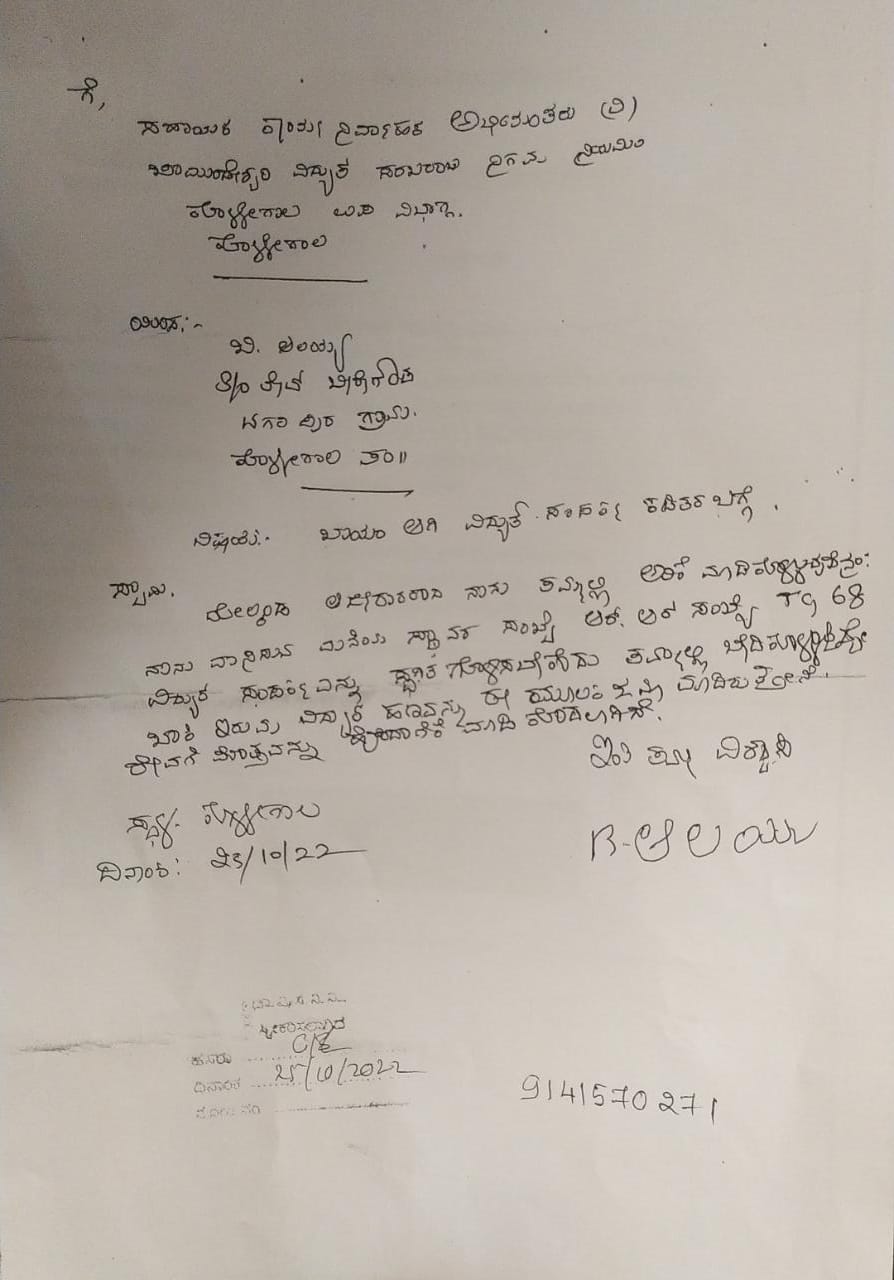 ಗೆ,
ಸಹಾಯಕ ಕಾರ್ಯ ನಿರ್ವಾಹಕ ಅಭಿಯಂತರು (ವಿ)
ಚಾಮುಂಡೇಶ್ವರಿ ವಿದ್ಯುತ ಸರಬರಾಜು ನಿಗಮ ನಿಯಮಿತ
ಕೊಳ್ಳೇಗಾಲ ಉಪ ವಿಭಾಗ.
ಕೊಳ್ಳೇಗಾಲ
ಯಿಂದ:-
ಬಿ. ಆಲಯ್ಯ
S/o ಲೇಟ್
ಗ್ರಾಮ.
ಕೊಳ್ಳೇಗಾಲ ತಾ॥
ವಿಷಯ:- ಖಾಯಂ ಆಗಿ ವಿದ್ಯುತ್ ಸಂಪರ್ಕ ಕಡಿತದ ಬಗ್ಗೆ.
ಸ್ವಾಮಿ.
ಮೇಲ್ಕಂಡ ಅರ್ಜಿದಾರನಾದ ನಾನು ತಮ್ಮಲ್ಲಿ ಅರಿಕೆ ಮಾಡಿಕೊಳ್ಳುವುದೇನಂ:
ನಾನು ವಾಸಿಸುವ ಮನೆಯ ಸ್ಥಾವರ ಸಂಖ್ಯೆ ಆರ್. ಆರ್ ಸಂಖ್ಯೆ TG 68
ವಿದ್ಯುತ ಸಂಪರ್ಕವನ್ನು ಸ್ಥಗಿತ ಗೊಳಿಸಬೇಕೆಂದು ತಮ್ಮಲ್ಲಿ ಬೇಡಿಕೊಳ್ಳುತ್ತೇನೆ
ಬಾಕಿ ಇರುವ ವಿದ್ಯುತ ಹಣವನ್ನು ಈ ಮೂಲಕ ಜಮಾ ಮಾಡಿರುತ್ತೇನೆ.
ಠೇವಣಿ ಮೊತ್ತವನ್ನು ಹೊಂದಾಣಿಕೆ ಮಾಡಿ ಕೊಡಲಾಗಿದೆ.
ಇಂತಿ ತಮ್ಮ ವಿಶ್ವಾಸಿ
ಸ್ಥಳ- ಕೊಳ್ಳೇಗಾಲ
ದಿನಾಂಕ: 25/10/22
B-ಆಲಯ್ಯ
ಚಾ.ವಿ.ಸ.ನಿ.ನಿ.
ಸ್ವೀಕರಿಸಲ್ಪಟ್ಟಿದೆ
ದಿನಾಂಕ 25/10/2022
9141570271